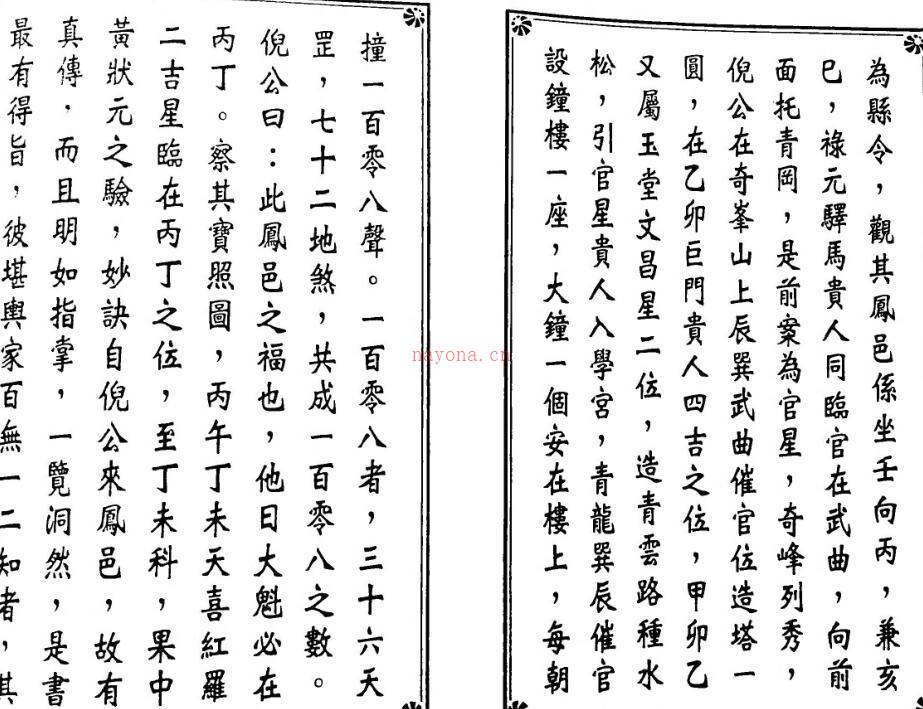 為縣令，觀其鳳邑係坐壬向丙，兼亥
巳，祿元驛馬貴人同臨官在武曲，向前
面托青岡，是前案為官星，奇峰列秀，
倪公在奇峯山上辰巽武曲催官位造塔一
圓，在乙卯巨門貴人四吉之位，甲卯乙
又屬玉堂文昌星二位，造青雲路種水
松，引官星貴人入學宮，青龍巽辰催官
設鐘樓一座，大鐘一個安在樓上，每朝
撞一百零八聲。一百零八者，三十六天
罡，七十二地煞，共成一百零八之數。
倪公曰：此鳳邑之福也，他日大魁必在
丙丁。察其寶照圖，丙午丁未天喜紅羅
二吉星臨在丙丁之位，至丁未科，果中
黃狀元之驗，妙訣自倪公來鳳邑，故有
真傳．而且明如指掌，一覽洞然，是書
最有得旨，彼堪輿家百無一二知者，其
nayona.cn